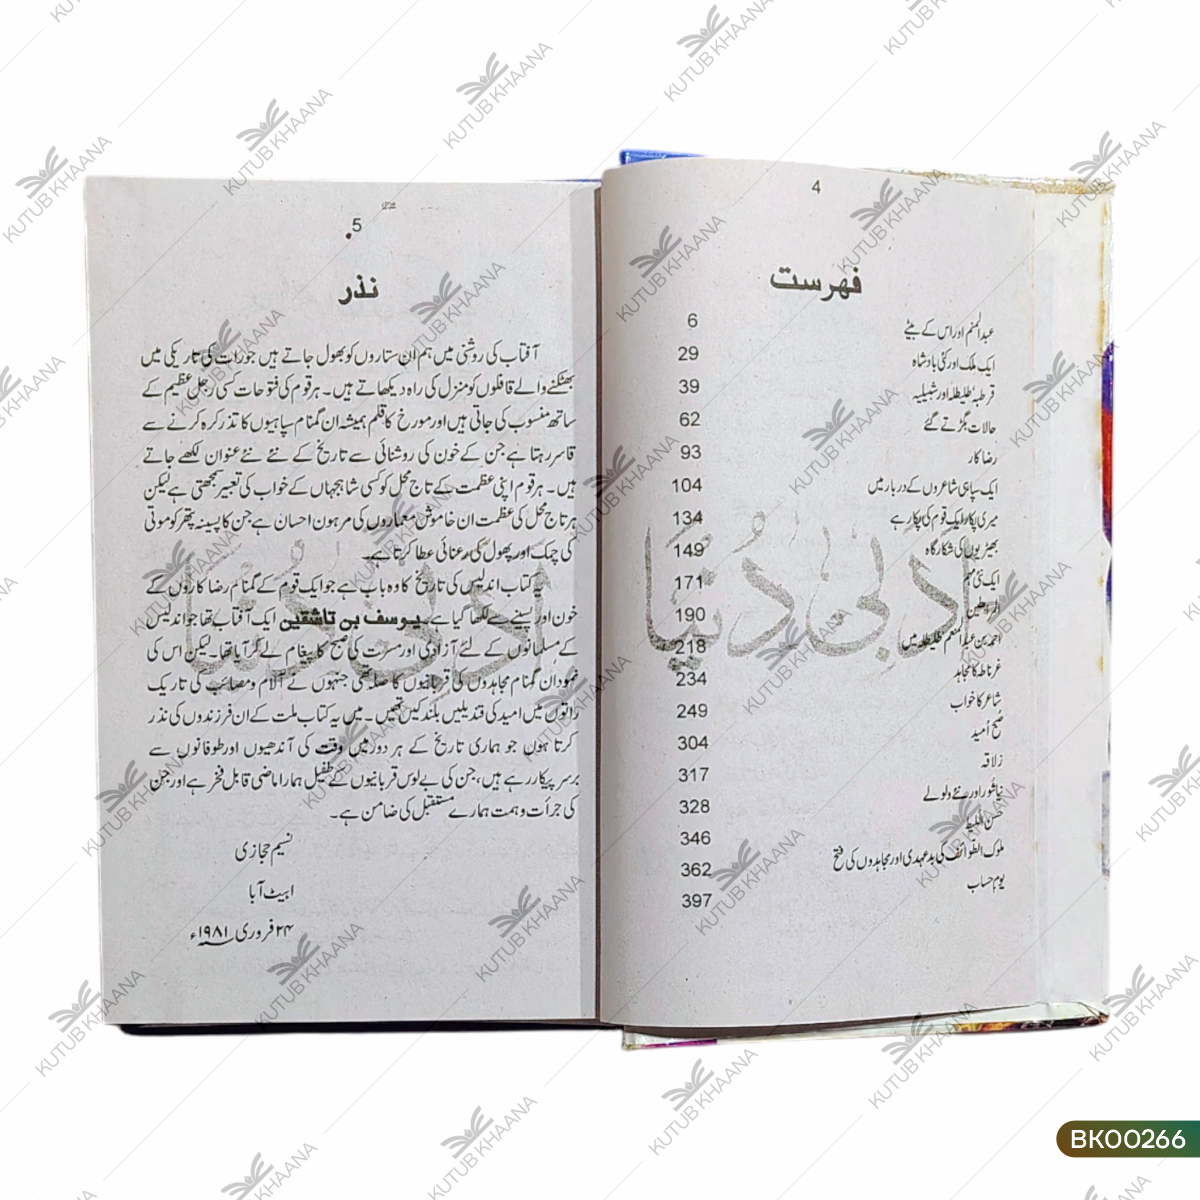 4
فہرست
عبدالمنعم اور اس کے بیٹے 6
ایک ملک اور کئی بادشاہ 29
قرطبہ، طلیطلہ اور شبیلیہ 39
حالات بگڑتے گئے 62
رضا کار 93
ایک سپاہی شاعروں کے دربار میں 104
میری پکار ایک قوم کی پکار ہے 134
بھیڑیوں کی شکار گاہ 149
ایک نئی مہم 171
190
احمد بن عبدالمنعم طلیطلہ میں 218
غرناطہ کا مجاہد 234
شاعر کا خواب 249
صبح اُمید 304
زلاقہ 317
نیا شور اور نئے ولولے 328
حصن اللیط 346
ملوک الطوائف کی بدعہدی اور مجاہدوں کی فتح 362
یوم حساب 397
ادبی دُنیا
5
نذر
آفتاب کی روشنی میں ہم ان ستاروں کو بھول جاتے ہیں جو رات کی تاریکی میں
بھٹکنے والے قافلوں کو منزل کی راہ دیکھاتے ہیں۔ ہر قوم کی فتوحات کسی رجلِ عظیم کے
ساتھ منسوب کی جاتی ہیں اور مورخ کا قلم ہمیشہ ان گمنام سپاہیوں کا تذکرہ کرنے سے
قاسر رہتا ہے جن کے خون کی روشنائی سے تاریخ کے نئے نئے عنوان لکھے جاتے
ہیں۔ ہر قوم اپنی عظمت کے تاج محل کو کسی شاہجہاں کے خواب کی تعبیر سمجھتی ہے لیکن
ہر تاج محل کی عظمت ان خاموش معماروں کی مرہون احسان ہے جن کا پسینہ پتھر کو موتی
کی چمک اور پھول کی رعنائی عطا کرتا ہے۔
یہ کتاب اندلیس کی تاریخ کا وہ باب ہے جو ایک قوم کے گمنام رضا کاروں کے
خون اور پسینے سے لکھا گیا ہے۔ یوسف بن تاشقین ایک آفتاب تھا جو اندلیس
کے مسلمانوں کے لئے آزادی اور مسرت کی صبح کا پیغام لے کر آیا تھا۔ لیکن اس کی
نمود ان گمنام مجاہدوں کی قربانیوں کا صلہ تھی جنہوں نے آلام و مصائب کی تاریک
راتوں میں امید کی قندیلیں بلند کیں تھیں۔ میں یہ کتاب ملت کے ان فرزندوں کی نذر
کرتا ہوں جو ہماری تاریخ کے ہر دور میں وقت کی آندھیوں اور طوفانوں سے
برسر پیکار رہے ہیں، جن کی بے لوس قربانیوں کے طفیل ہمارا ماضی قابل فخر ہے اور جن
کی جرأت و ہمت ہمارے مستقبل کی ضامن ہے۔
نسیم حجازی
ایبٹ آبا
۲۴ فروری ۱۹۸۱ء
ادبی دُنیا
KUTUB KHAANA
BK00266